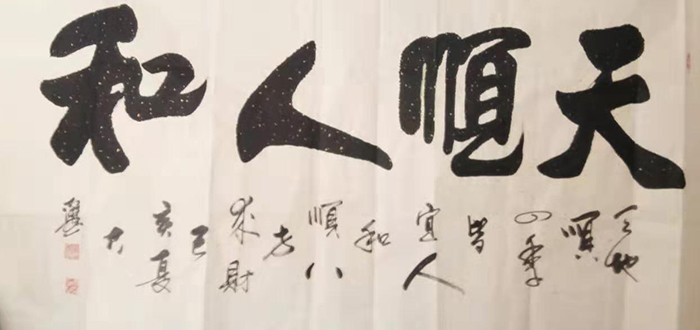 天順人和
天地順四季皆宜人和順八方來財己亥夏大